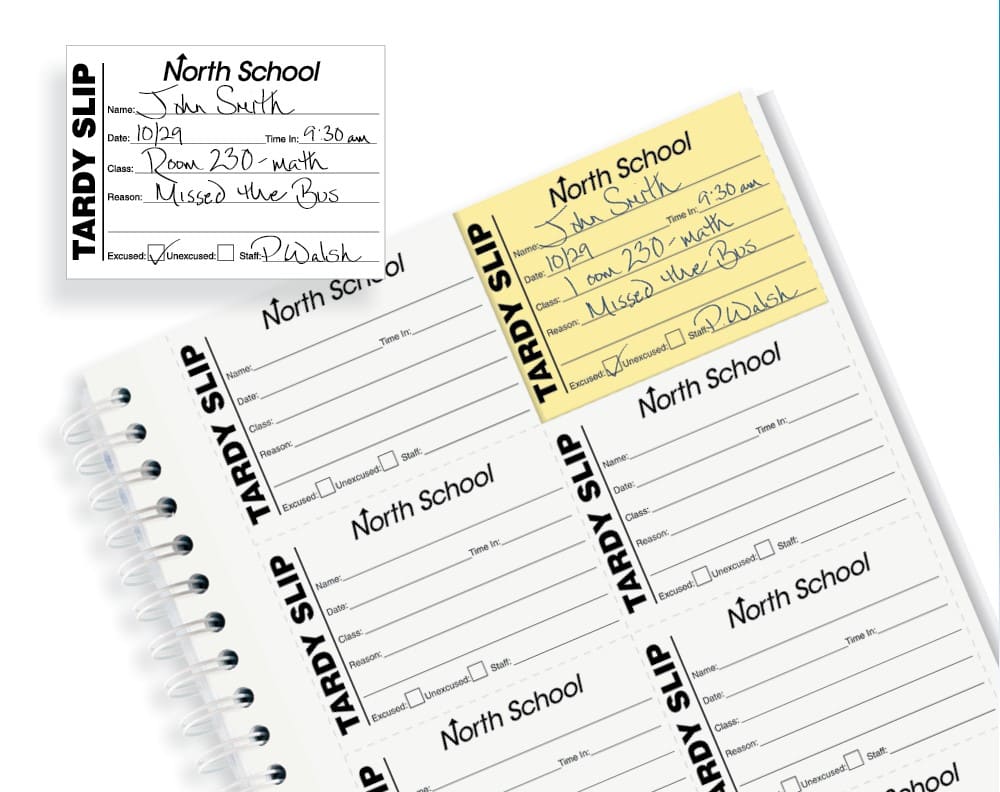 TARDY SLIP
North School
Name: John Smith
Date: 10/29 Time In: 9:30 am
Class: Room 230 - math
Reason: Missed the Bus
Excused: Unexcused: Staff: P. Walsh
TARDY SLIP
North School
Name: John Smith
Date: 10/29 Time In: 9:30 am
Class: oom 230 - math
Reason: Missed the Bus
Excused: Unexcused: Staff: P. Walsh
TARDY SLIP
North School
Name:
Date: Time In:
Class:
Reason:
Excused: Unexcused: Staff:
TARDY SLIP
North School
Name:
Date: Time In:
Class:
Reason:
Excused: Unexcused: Staff:
TARDY SLIP
North School
Name:
Date: Time In:
Class:
Reason:
Excused: Unexcused: Staff:
TARDY SLIP
North School
Name:
Date: Time In:
Class:
Reason:
Unexcused: Staff:
North School
Time In: